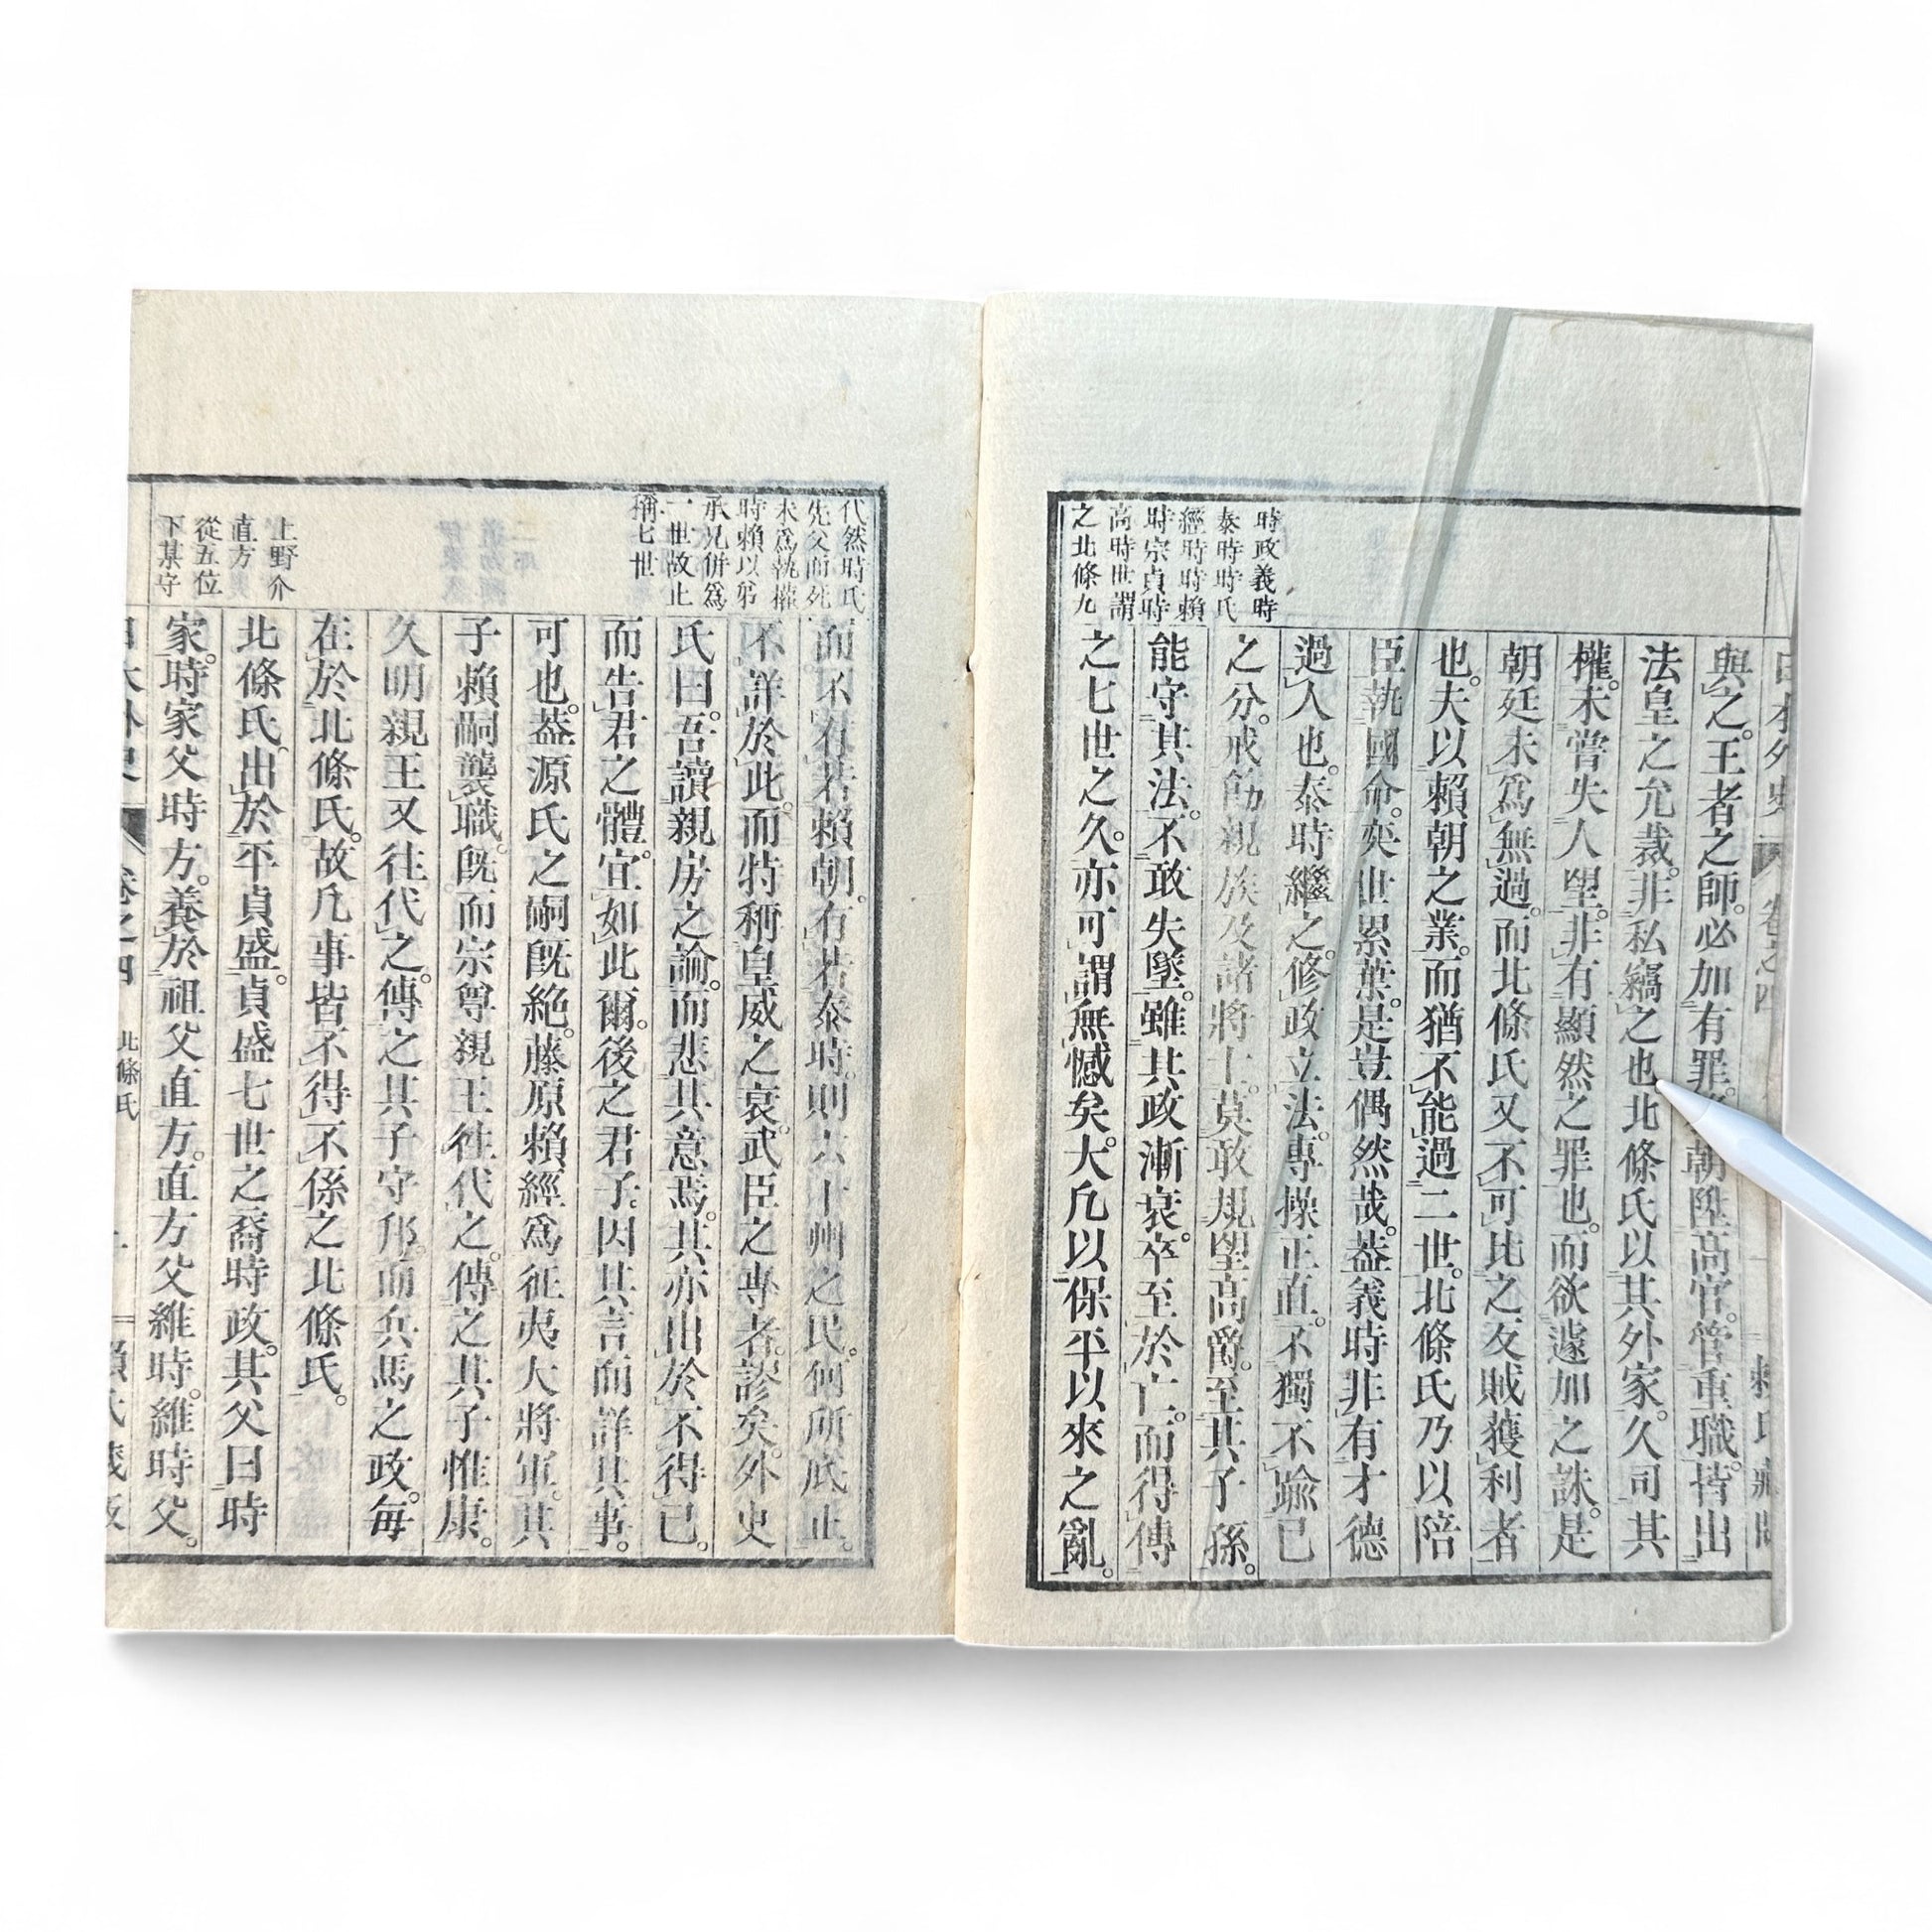 時政義時
泰時時氏
經時時賴
時宗貞時
高時世謂
之北條九
與之。王者之師。必加有罪。朝陞高官。管重職。皆出
法皇之允裁。非私竊之也北條氏以其外家。久司其
權。未嘗失人望。非有顯然之罪也。而欲遽加之誅。是
朝廷未爲無過。而北條氏又不可比之友賊獲利者
也。夫以賴朝之業。而猶不能過二世。北條氏乃以陪
臣執國命。奕世累葉。是豈偶然哉。蓋義時非有才德
過人也。泰時繼之。修政立法。專操正直。不獨不踰已
之分。戒飭親族及諸將士。莫敢規望高爵。至其子孫。
能守其法。不敢失墜。雖其政漸衰。卒至於亡。而得傳
之七世之久。亦可謂無憾矣。大凡以保平以來之亂。
代然時氏
先父而死
未爲執權
時賴以弟
承兄併爲
一世故止
稱七世
而不有若賴朝。有若泰時。則六十州之民。何所底止。
不詳於此。而特稱皇威之衰。武臣之專者。謬矣。外史
氏曰。吾讀親房之論。而悲其意焉。其亦出於不得已。
而告君之體。宜如此爾。後之君子。因其言而詳其事。
可也。蓋源氏之嗣旣絶。藤原賴經爲征夷大將軍。其
子賴嗣襲職。旣而宗尊親王徃代之。傳之其子惟康。
久明親王又往代之。傳之其子守邦。而兵馬之政。每
在於北條氏。故凡事皆不得不係之北條氏。
北條氏。出於平貞盛。貞盛七世之裔時政。其父曰時
家。時家父時方。養於祖父直方。直方父維時。維時父。
上野介
直方
從五位
下某守
卷之四
北條氏